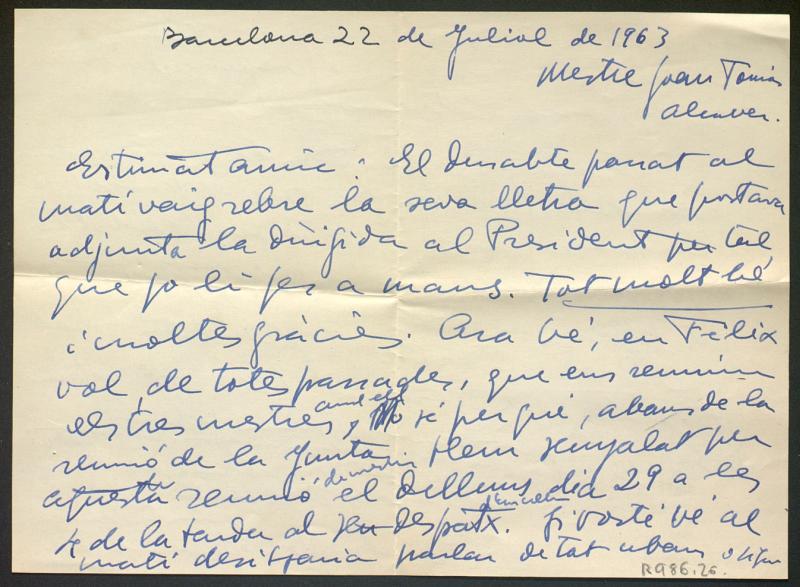 Barcelona 22 de Juliol de 1963
Mestre Joan Tomàs
Alcover.
Estimat amic: El dissabte passat al
matí vaig rebre la seva lletra que portava
adjunta la dirigida al President per tal
que jo li fes a mans. Tot molt bé
i moltes gràcies. Ara bé, en Fèlix
vol, de totes passades, que ens reunim
els tres mestres, amb ell
No sé perquè, abans de la
reunió de la Junta. Hem senyalat per
aquesta reunió el dilluns dia 29 a les
4 de la tarda al despatx. Si vostè vé al
matí desitjaria parlar de tot abans
R.986.26